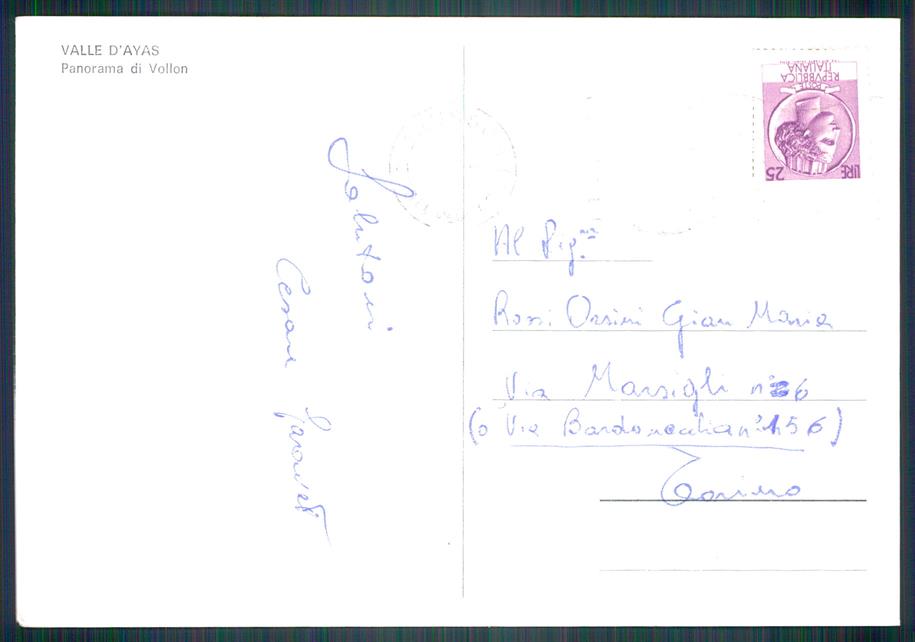 VALLE D'AYAS
Panorama di Vollon
POSTE
REPVBBLICA
ITALIANA
LIRE 25
Saluti
Cesare
Al Sig.
Rossi Orsini Gian Maria
Via Marsigli n° 6
(o Via Bardonecchia n° 156)
Torino